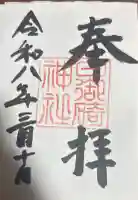 奉拝
日御碕
神社
令和八年三月十日